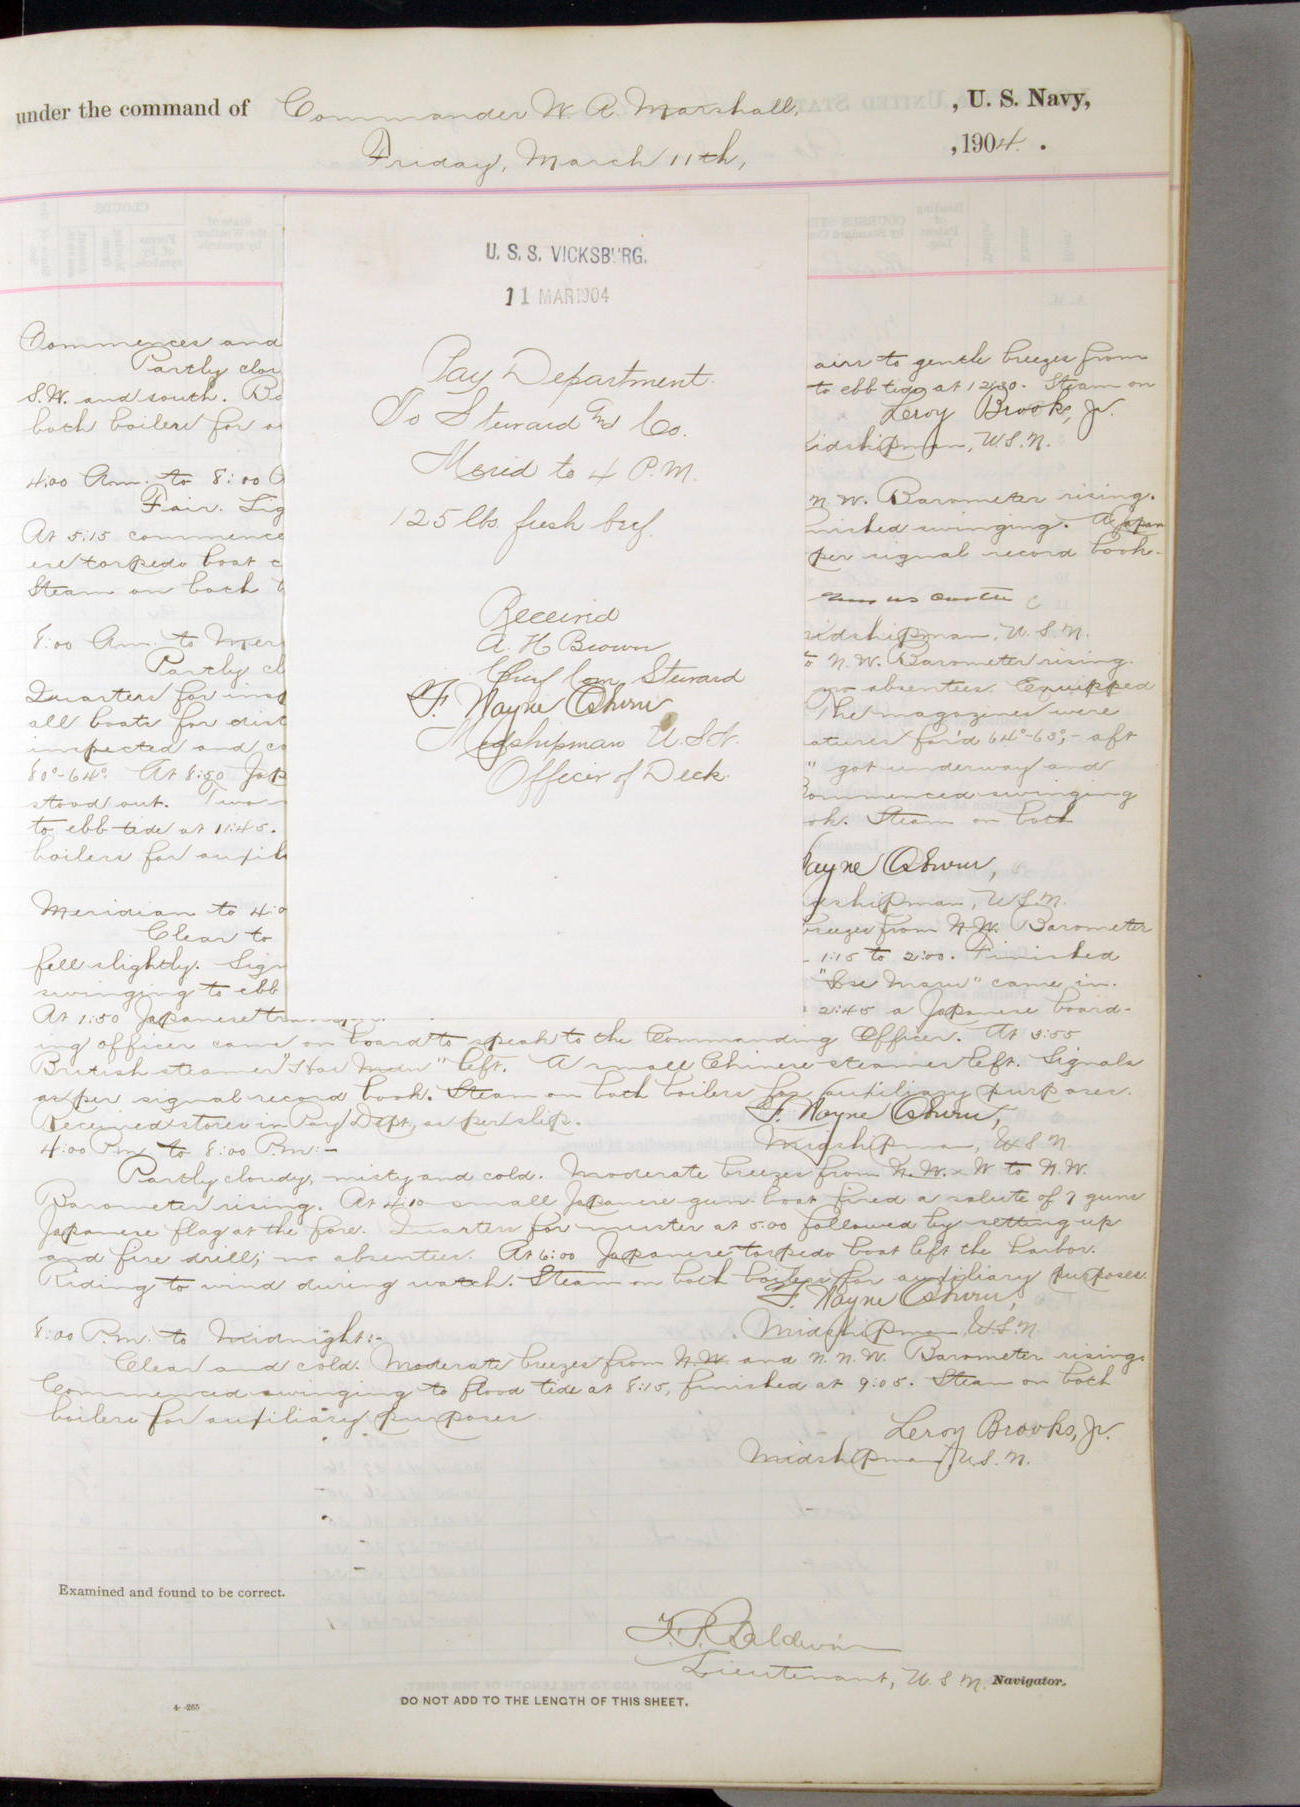 under the command of Commander W. A. Marshall, , U. S. Navy,
Friday, March 11th, , 1904.
U. S. S. VICKSBURG.
11 MAR 1904
Pay Department
To Steward &
Co.
Merid to 4 P.M.
125 lbs. fresh beef.
Received
A. H. Brown
Chief Com Steward
F. Wayne Osburn
Midshipman U.S.N.
Officer of Deck.
Commences and
Partly
airs to gentle breezes from
S.W. and south.
to ebb tide at 12:30. Steam on
both boilers for
Leroy Brooks, Jr.
Midshipman, U.S.N.
4:00 Am. to 8:00
Fair.
N.W. Barometer rising.
At 5:15 commence
swinging. A Japan
ese torpedo boat
per signal record book.
Steam on both
midshipman, U.S.N.
8:00 Am. to Mer
Partly cl
to N.W. Barometer rising.
Quarters for
no absentees. Equipped
all boats for dist
The magazines were
inspected and
for'd 64°-63°, - aft
80°-64°. At 8:50 Jap
got underway and
stood out. Two
commenced swinging
to ebb tide at 11:45.
Steam on both
boilers for auxil
Wayne Osburn,
Midshipman, U.S.N.
Meridian to 4:0
Clear to
breezes from N.W. Barometer
fell slightly. Sign
1:15 to 2:00. Finished
swinging to ebb
Maru" came in.
At 1:50 Japanese
2:45 a Japanese board-
ing officer came on board to speak to the Commanding Officer. At 3:55
British steamer left. A small Chinese steamer left. Signals
as per signal record book. Steam on both boilers for auxiliary purposes.
Received stores in Pay Dept, as per slip.
F. Wayne Osburn,
Midshipman, U.S.N
4:00 P.m. to 8:00 P.m:-
Partly cloudy, misty and cold. Moderate breezes from N.W. x W to N.W.
Barometer rising. At 4:10 small Japanese gun boat fired a salute of 7 guns
Japanese flag at the fore. Quarters for muster at 5:00 followed by setting up
and fire drill; no absentees. At 6:00 Japanese torpedo boat left the harbor.
Riding to wind during watch. Steam on both boilers for auxiliary purposes.
F. Wayne Osburn,
Midshipman U.S.N.
8:00 P.m. to Midnight:-
Clear and cold. Moderate breezes from N.W. and N.N.W. Barometer rising.
Commenced swinging to flood tide at 8:15, finished at 9:05. Steam on both
boilers for auxiliary purposes
Leroy Brooks, Jr.
Midshipman, U.S.N.
Examined and found to be correct.
Baldwin
Lieutenant, U.S.N. Navigator.
4-265
DO NOT ADD TO THE LENGTH OF THIS SHEET.